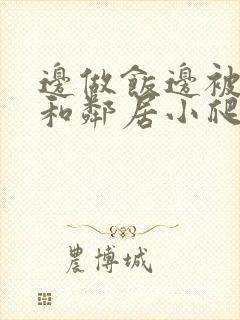 邊做飯邊被
和鄰居小爬
農博城